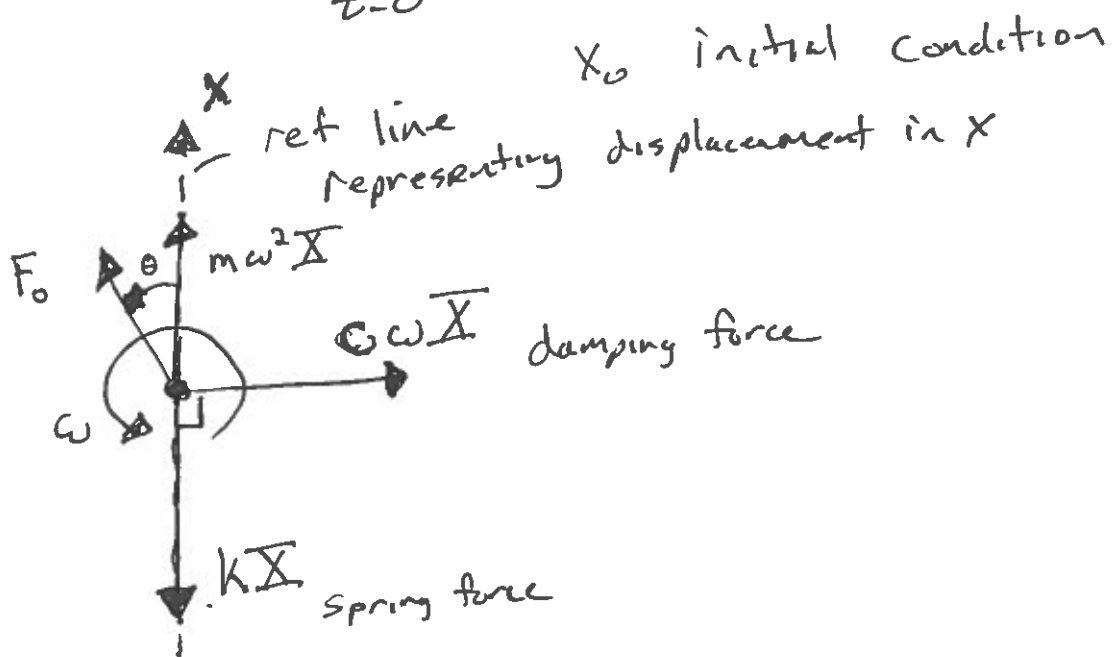 t=0
X₀ initial condition
X
ref line
representing displacement in X
F₀
θ
mω²X̅
cωX̅ damping force
ω
kX̅ spring force